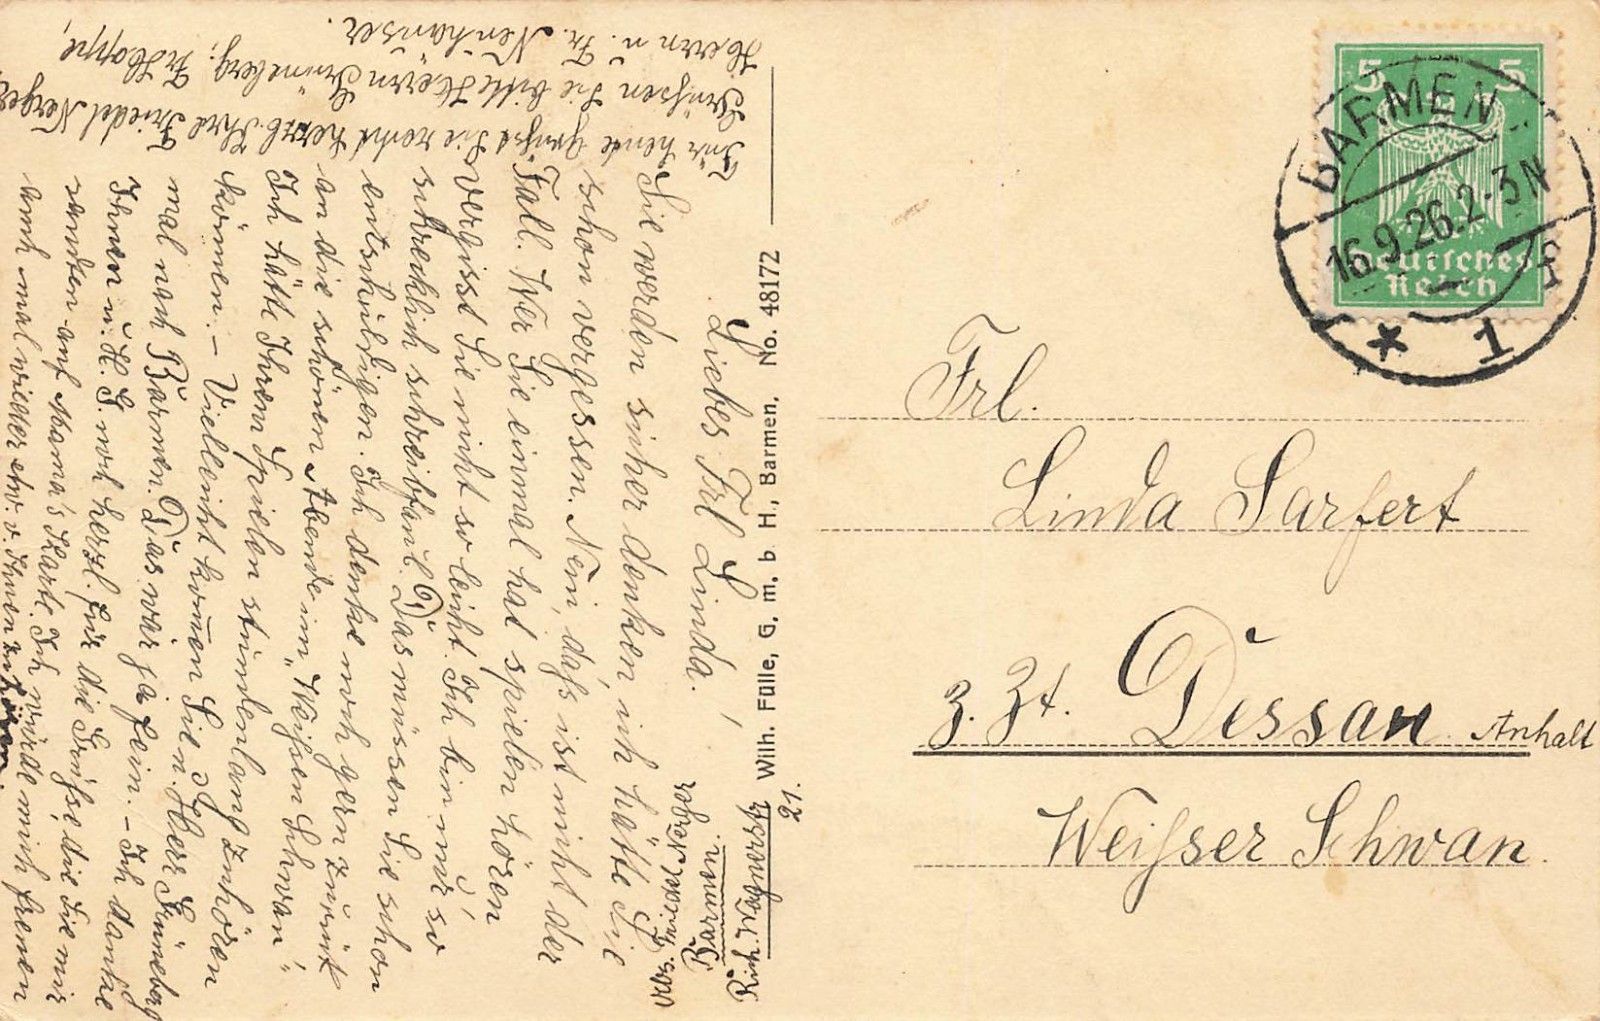 5 5
Deutsches
Reich
BARMEN
16.9.26.2-3N
* 1 f
Frl.
Linda Sarfert
z. Zt. Dessau Anhalt
Weißer Schwan.
Wilh. Fülle, G. m. b H., Barmen, No. 48172
Abs. Friedel Nerger
Barmen.
Rich. Wagnerstr
21.
Liebes Frl Linda!
Sie werden sicher denken, ich hätte Sie
schon vergessen. Nein, daß ist nicht der
Fall. Wer Sie einmal hat spielen hören
vergisst Sie nicht so leicht. Ich bin nur so
schrecklich schreibfaul. Das müssen Sie schon
entschuldigen. Ich denke noch gern zurück
an die schönen Abende im „Weißen Schwan"
Ich hätte Ihrem Spielen stundenlang zuhören
können. – Vielleicht kommen Sie u. Herr Grüneberg
mal nach Barmen. Das wär ja fein. – Ich danke
Ihnen u. H. G. noch herzl. für die Grüße, die Sie mir
sandten auf Mama's Karte. Ich würde mich freuen
auch mal wieder etw. v. Ihnen zu hören.
Für heute grüßt Sie recht herzl. Ihre Friedel Nerger
Grüßen Sie bitte Herrn Grüneberg, Fr. Hoppe,
Herrn u. Fr. Neuhäuser.